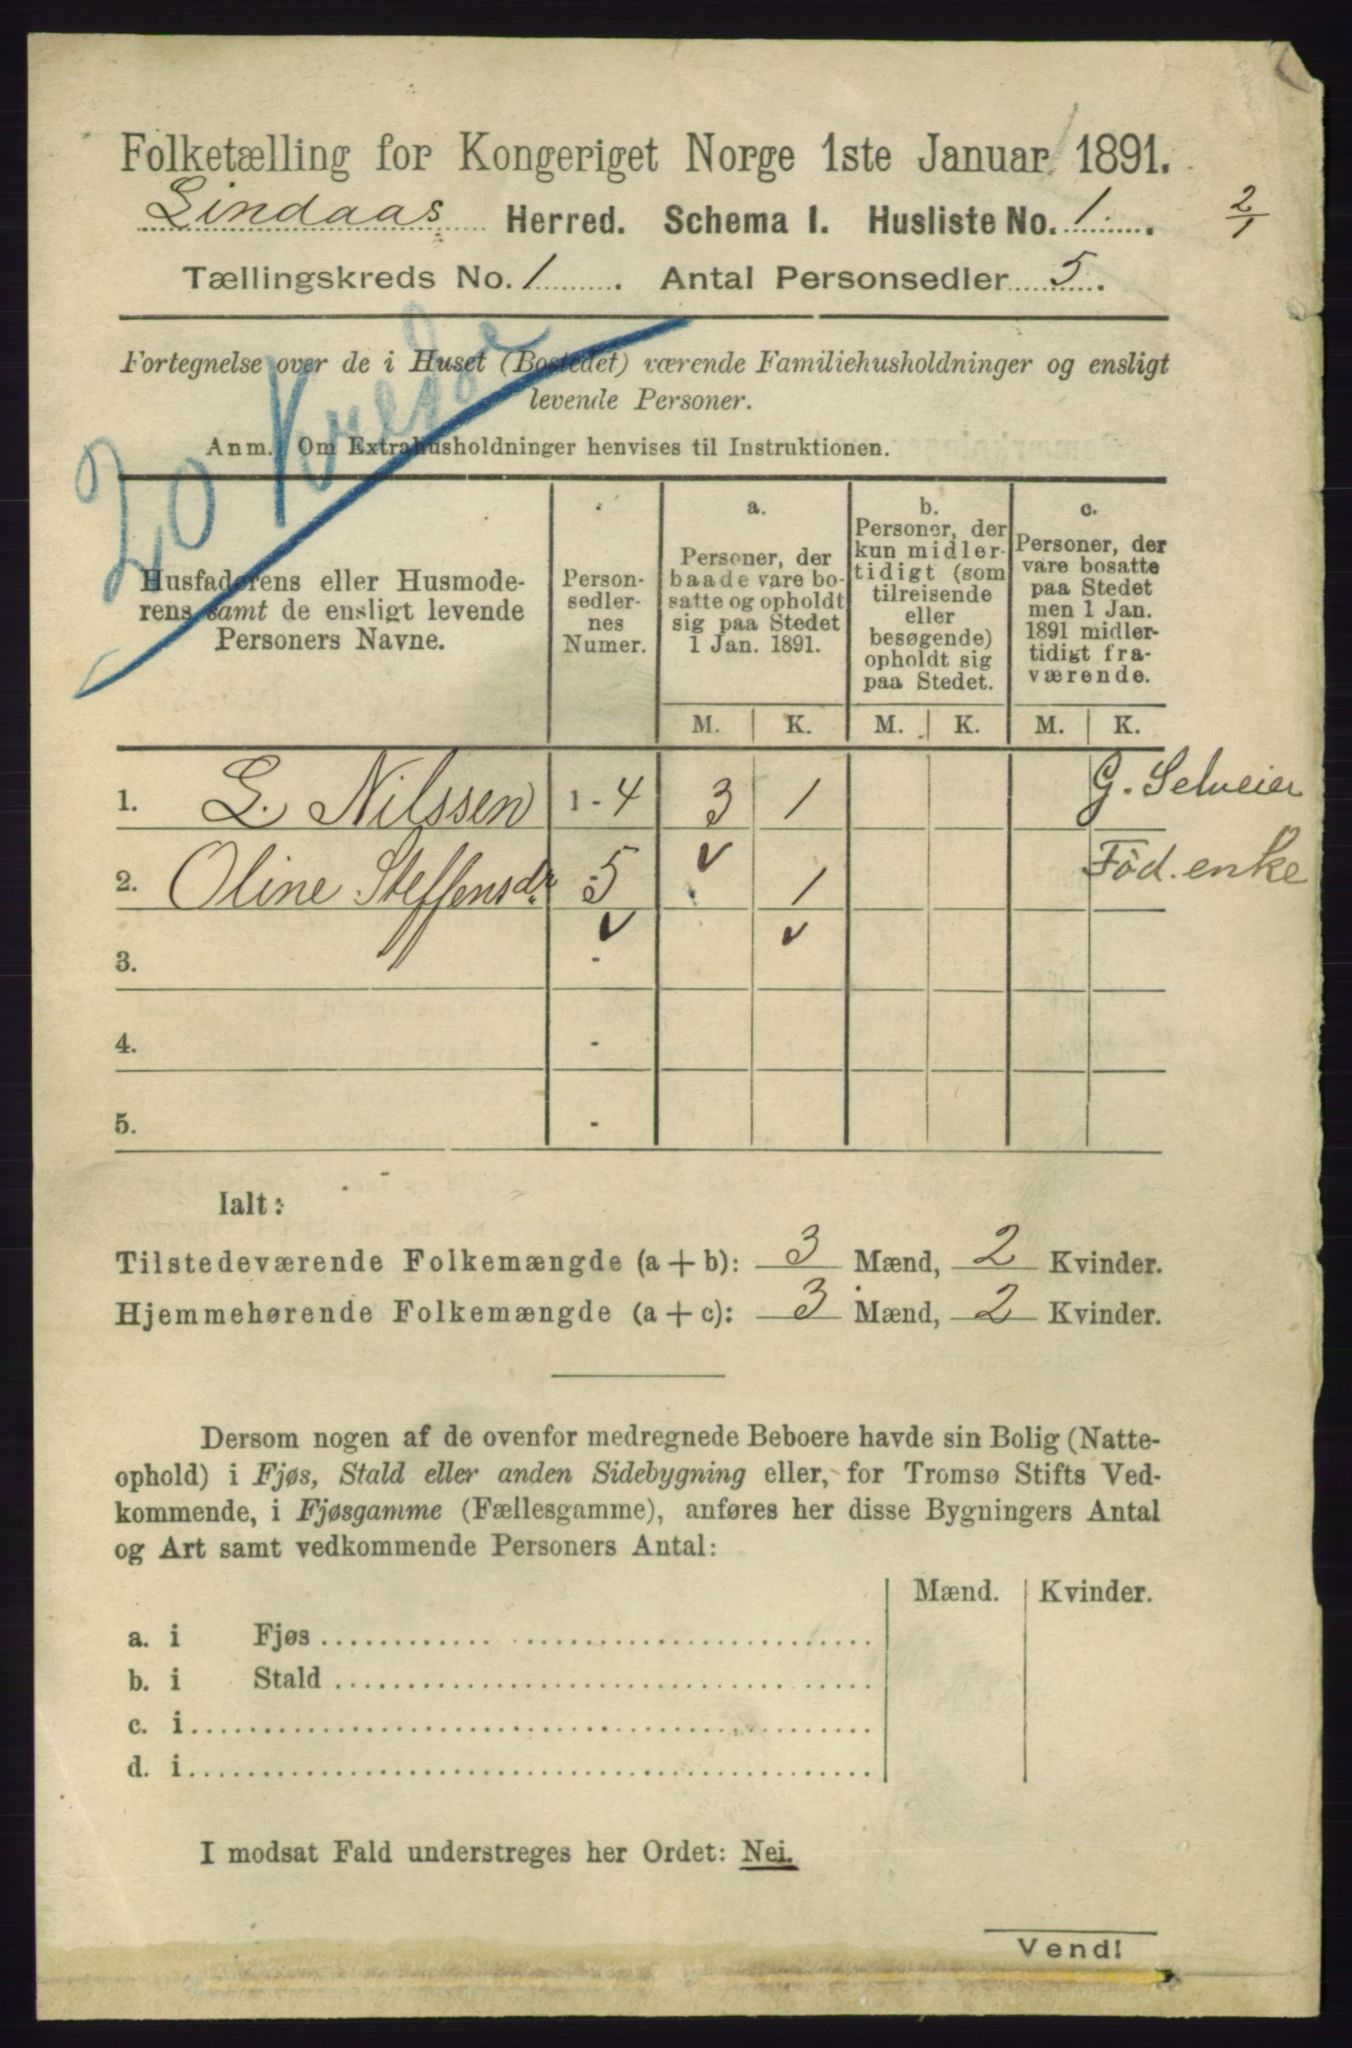 Folketælling for Kongeriget Norge 1ste Januar 1891.
Lindaas Herred. Schema I. Husliste No. 1. 2/1
Tællingskreds No. 1. Antal Personsedler 5.
20 Kreds
Fortegnelse over de i Huset (Bostedet) værende Familiehusholdninger og ensligt
levende Personer.
Anm. Om Extrahusholdninger henvises til Instruktionen.
Husfaderens eller Husmode-
rens samt de ensligt levende
Personers Navne.
Person-
sedler-
nes
Numer.
a.
Personer, der
baade vare bo-
satte og opholdt
sig paa Stedet
1 Jan. 1891.
b.
Personer, der
kun midler-
tidigt (som
tilreisende
eller
besøgende)
opholdt sig
paa Stedet.
c.
Personer, der
vare bosatte
paa Stedet
men 1 Jan.
1891 midler-
tidigt fra-
værende.
M. K. M. K. M. K.
1. L. Nilssen 1 - 4 3 1 G. Selveier
2. Oline Steffensdr. 5 1 Fød. enke
3. -
4. -
5. -
Ialt:
Tilstedeværende Folkemængde (a + b): 3 Mænd, 2 Kvinder.
Hjemmehørende Folkemængde (a + c): 3 Mænd, 2 Kvinder.
Dersom nogen af de ovenfor medregnede Beboere havde sin Bolig (Natte-
ophold) i Fjøs, Stald eller anden Sidebygning eller, for Tromsø Stifts Ved-
kommende, i Fjøsgamme (Fællesgamme), anføres her disse Bygningers Antal
og Art samt vedkommende Personers Antal:
Mænd. Kvinder.
a. i Fjøs
b. i Stald
c. i
d. i
I modsat Fald understreges her Ordet: Nei.
Vend!